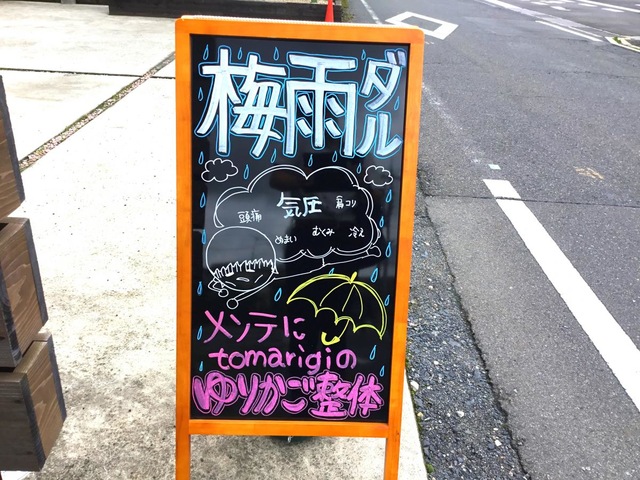 梅雨ダル
気圧
頭痛
肩コリ
めまい
むくみ
冷え
メンテに
tomarigiの
ゆりかご整体